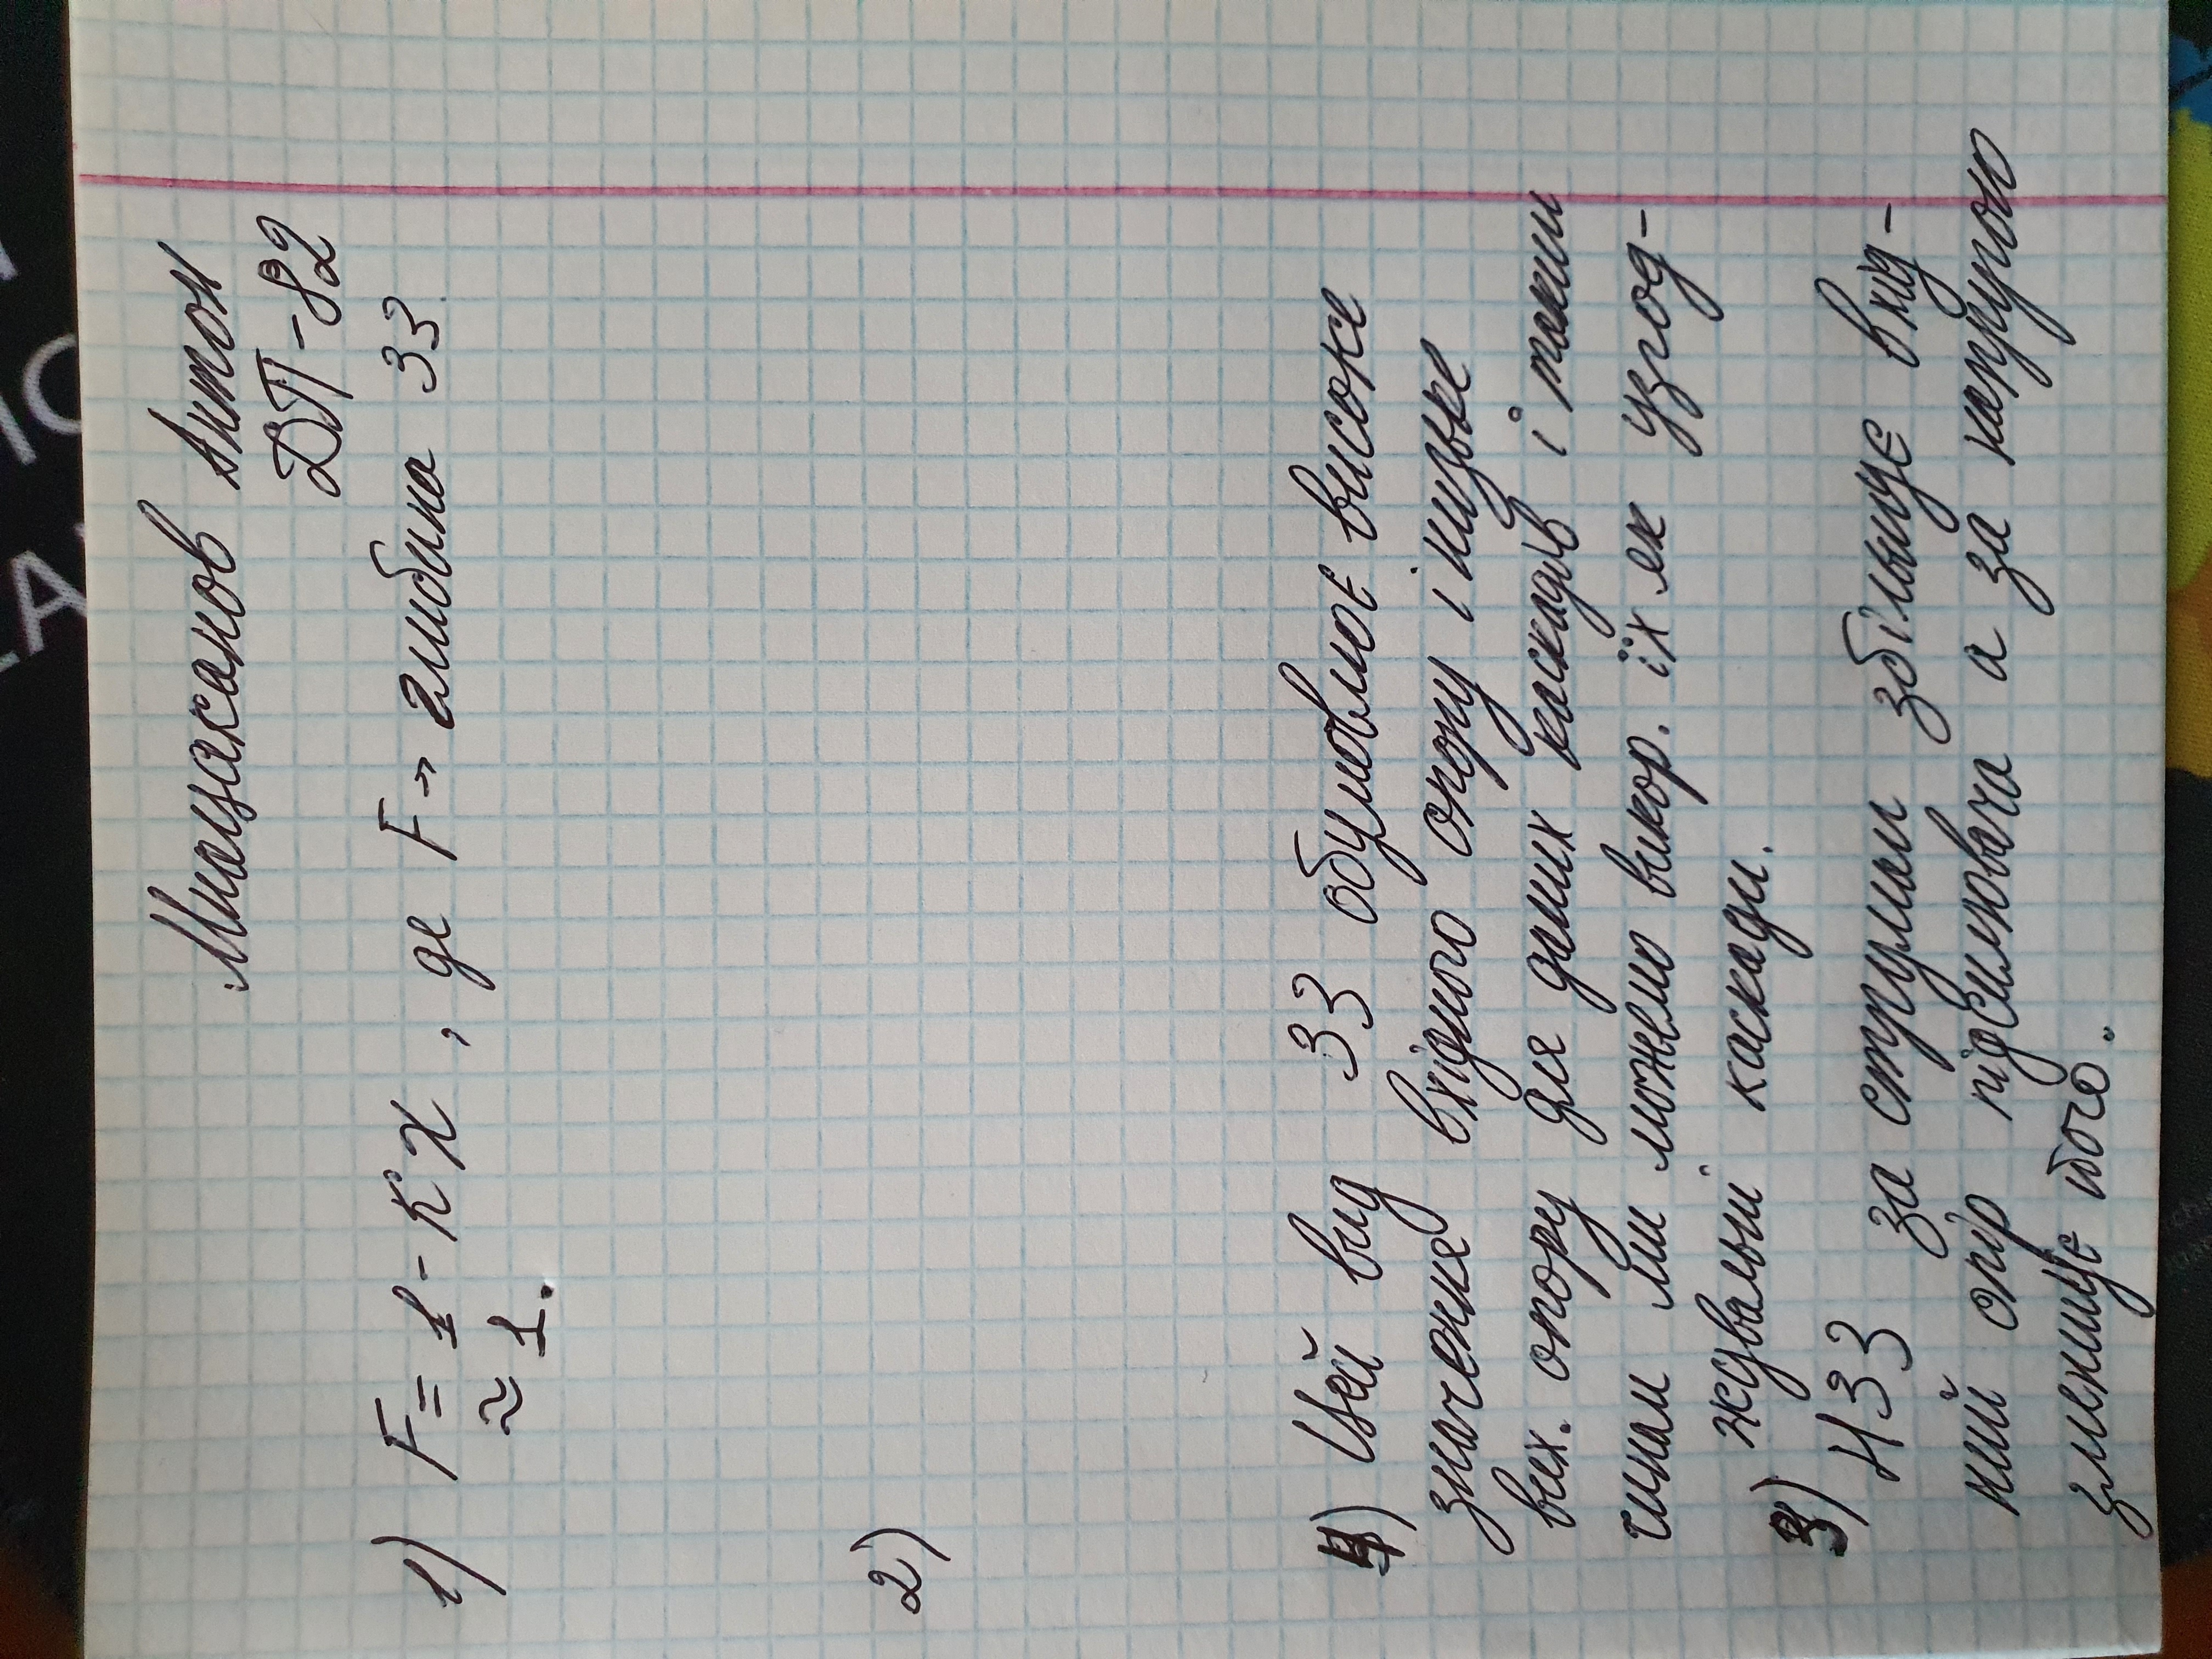 Мнацаканов Антон
ДП-82
1) F = 1 - K X , де F → глибина ЗЗ.
≈ 1.
2)
4) Цей вид ЗЗ обумовлює високе
значення вхідного опору і низьке
вих. опору для даних каскадів і таким
чином ми можемо викор. їх як узгод-
ждвальні каскади.
3) НЗЗ за струмом збільшує вхід-
ний опір підсилювача а за напругою
зменшує його.